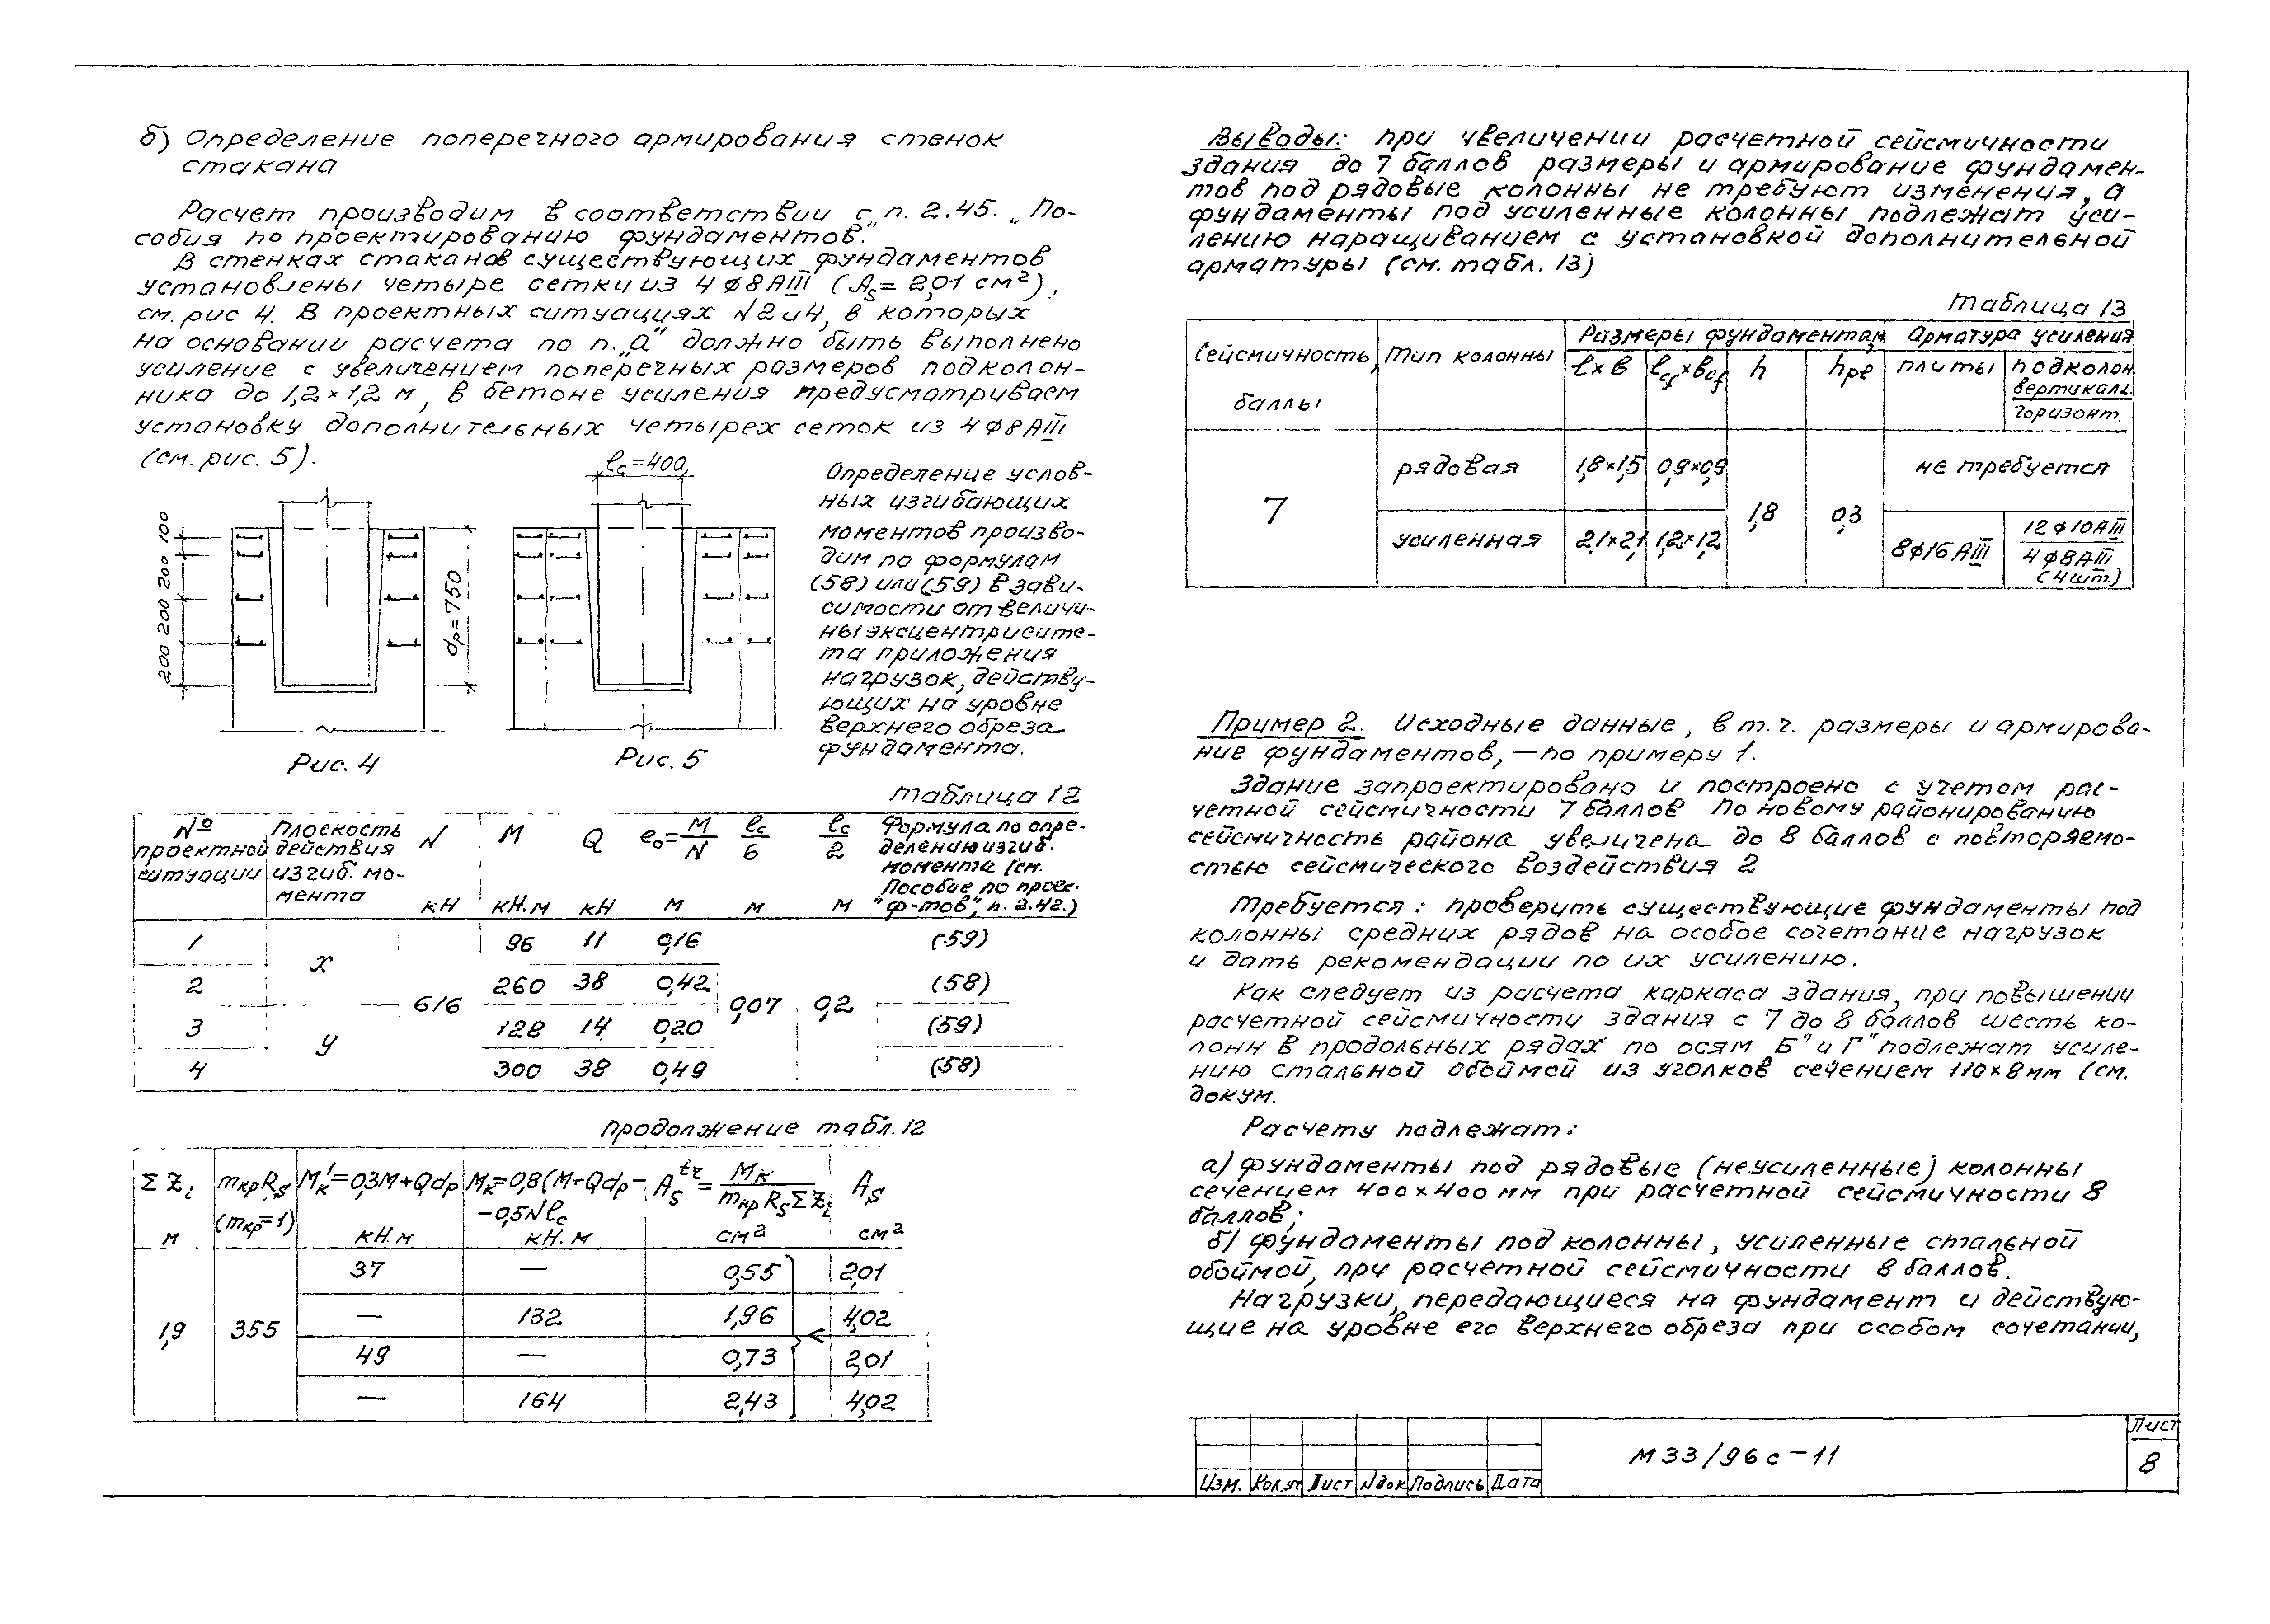 б) Определение поперечного армирования стенок
стакана
Расчет производим в соответствии с п. 2.45. „По-
собия по проектированию фундаментов."
В стенках стаканов существующих фундаментов
установлены четыре сетки из 4 ϕ 8 АIII (As = 2,01 см²),
см. рис 4. В проектных ситуациях N 2 и 4, в которых
на основании расчета по п. „а" должно быть выполнено
усиление с увеличением поперечных размеров подколон-
ника до 1,2 × 1,2 м, в бетоне усиления предусматриваем
установку дополнительных четырех сеток из 4 ϕ 8 АIII
(см. рис. 5).
lc = 400
100
200
200
200
dp = 750
Рис. 4
Рис. 5
Определение услов-
ных изгибающих
моментов произво-
дим по формулам
(58) или (59) в зави-
симости от величи-
ны эксцентрисите-
та приложения
нагрузок, действу-
ющих на уровне
верхнего обреза
фундамента.
Таблица 12
№ проектной ситуации | Плоскость действия изгиб. мо-мента | N кН | M кН.м | Q кН | e₀ = M/N м | lc/6 м | lc/2 м | Формула по опре-делению изгиб. момента (см. Пособие по проек. "ф-тов", п. 2.42.)
1 | x | 616 | 96 | 11 | 0,16 | 0,07 | 0,2 | (59)
2 | 260 | 38 | 0,42 | (58)
3 | у | 128 | 14 | 0,20 | (59)
4 | 300 | 38 | 0,49 | (58)
Продолжение табл. 12
Σ Zi м | mкр Rs (mкр = 1) | M'к = 0,3M + Qdp кН.м | Mк = 0,8(M + Qdp – – 0,5Nlc кН.м | As^tr = Mк / mкр Rs Σ Zi см² | As см²
1,9 | 355 | 37 | — | 0,55 | < | 2,01
— | 132 | 1,96 | 4,02
49 | — | 0,73 | 2,01
— | 164 | 2,43 | 4,02
Выводы: при увеличении расчетной сейсмичности
здания до 7 баллов размеры и армирование фундамен-
тов под рядовые колонны не требуют изменения, а
фундаменты под усиленные колонны подлежат уси-
лению наращиванием с установкой дополнительной
арматуры (см. табл. 13)
Таблица 13
Сейсмичность, баллы | Тип колонны | Размеры фундамента, м | Арматура усиления
l × b | lcf × bcf | h | hpl | плиты | подколон. вертикаль. горизонт.
7 | рядовая | 1,8 × 1,5 | 0,9 × 0,9 | 1,8 | 0,3 | не требуется
усиленная | 2,1 × 2,1 | 1,2 × 1,2 | 8 ϕ 16 АIII | 12 ϕ 10 АIII 4 ϕ 8 АIII (4 шт.)
Пример 2. Исходные данные, в т. ч. размеры и армирова-
ние фундаментов, — по примеру 1.
Здание запроектировано и построено с учетом рас-
четной сейсмичности 7 баллов По новому районированию
сейсмичность района увеличена до 8 баллов с повторяемо-
стью сейсмического воздействия 2
Требуется: проверить существующие фундаменты под
колонны средних рядов на особое сочетание нагрузок
и дать рекомендации по их усилению.
Как следует из расчета каркаса здания, при повышении
расчетной сейсмичности здания с 7 до 8 баллов шесть ко-
лонн в продольных рядах по осям Б" и Г" подлежат усиле-
нию стальной обоймой из уголков сечением 110 × 8 мм (см.
докум.
Расчету подлежат:
а) фундаменты под рядовые (неусиленные) колонны
сечением 400 × 400 мм при расчетной сейсмичности 8
баллов;
б) фундаменты под колонны, усиленные стальной
обоймой, при расчетной сейсмичности 8 баллов.
Нагрузки, передающиеся на фундамент и действую-
щие на уровне его верхнего обреза при особом сочетании,
Изм. Кол.уч Лист №док Подпись Дата
М33/96с – 11
Лист
8